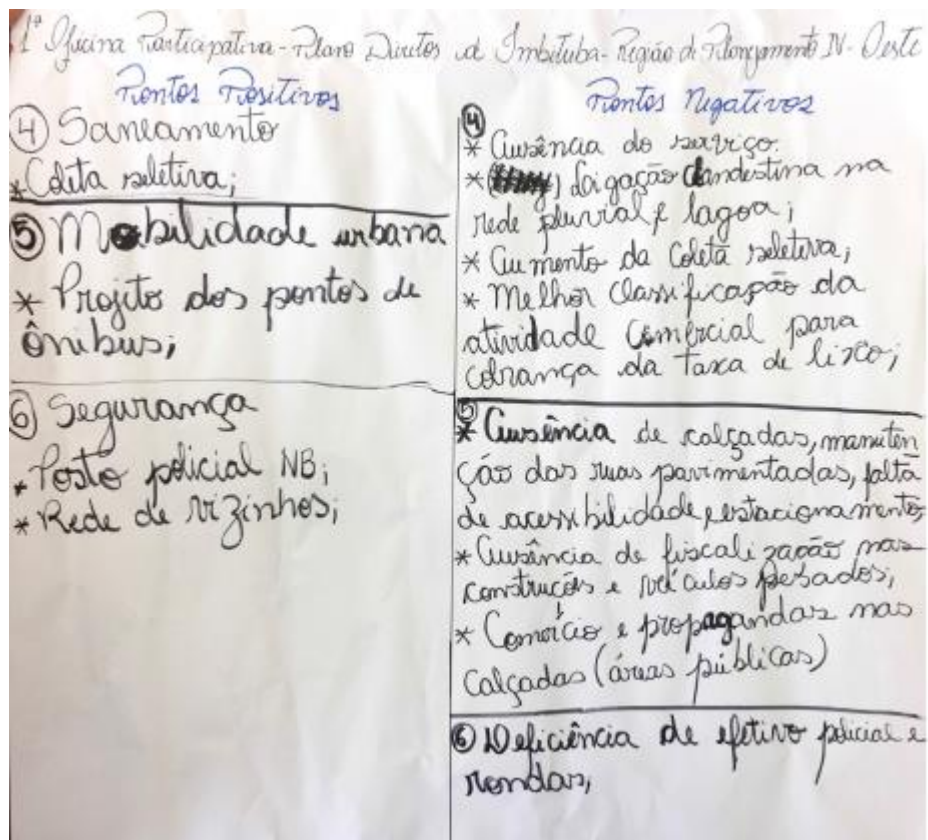 1ª Oficina Participativa - Plano Diretor de Imbituba - Região de Planejamento IV - Oeste
Pontos Positivos
④ Saneamento
* Coleta seletiva;
⑤ Mobilidade urbana
* Projeto dos pontos de
ônibus;
⑥ Segurança
* Posto policial NB;
* Rede de vizinhos;
Pontos Negativos
④
* Ausência do serviço.
* Ligação clandestina na
rede pluvial e lagoa;
* Aumento da coleta seletiva;
* Melhor classificação da
atividade comercial para
cobrança da taxa de lixo;
⑤
* Ausência de calçadas, manuten
ção das ruas pavimentadas, falta
de acessibilidade e estacionamento;
* Ausência de fiscalização nas
construções e veículos pesados;
* Comércio e propagandas nas
calçadas (áreas públicas)
⑥ Deficiência de efetivo policial e
rondas;